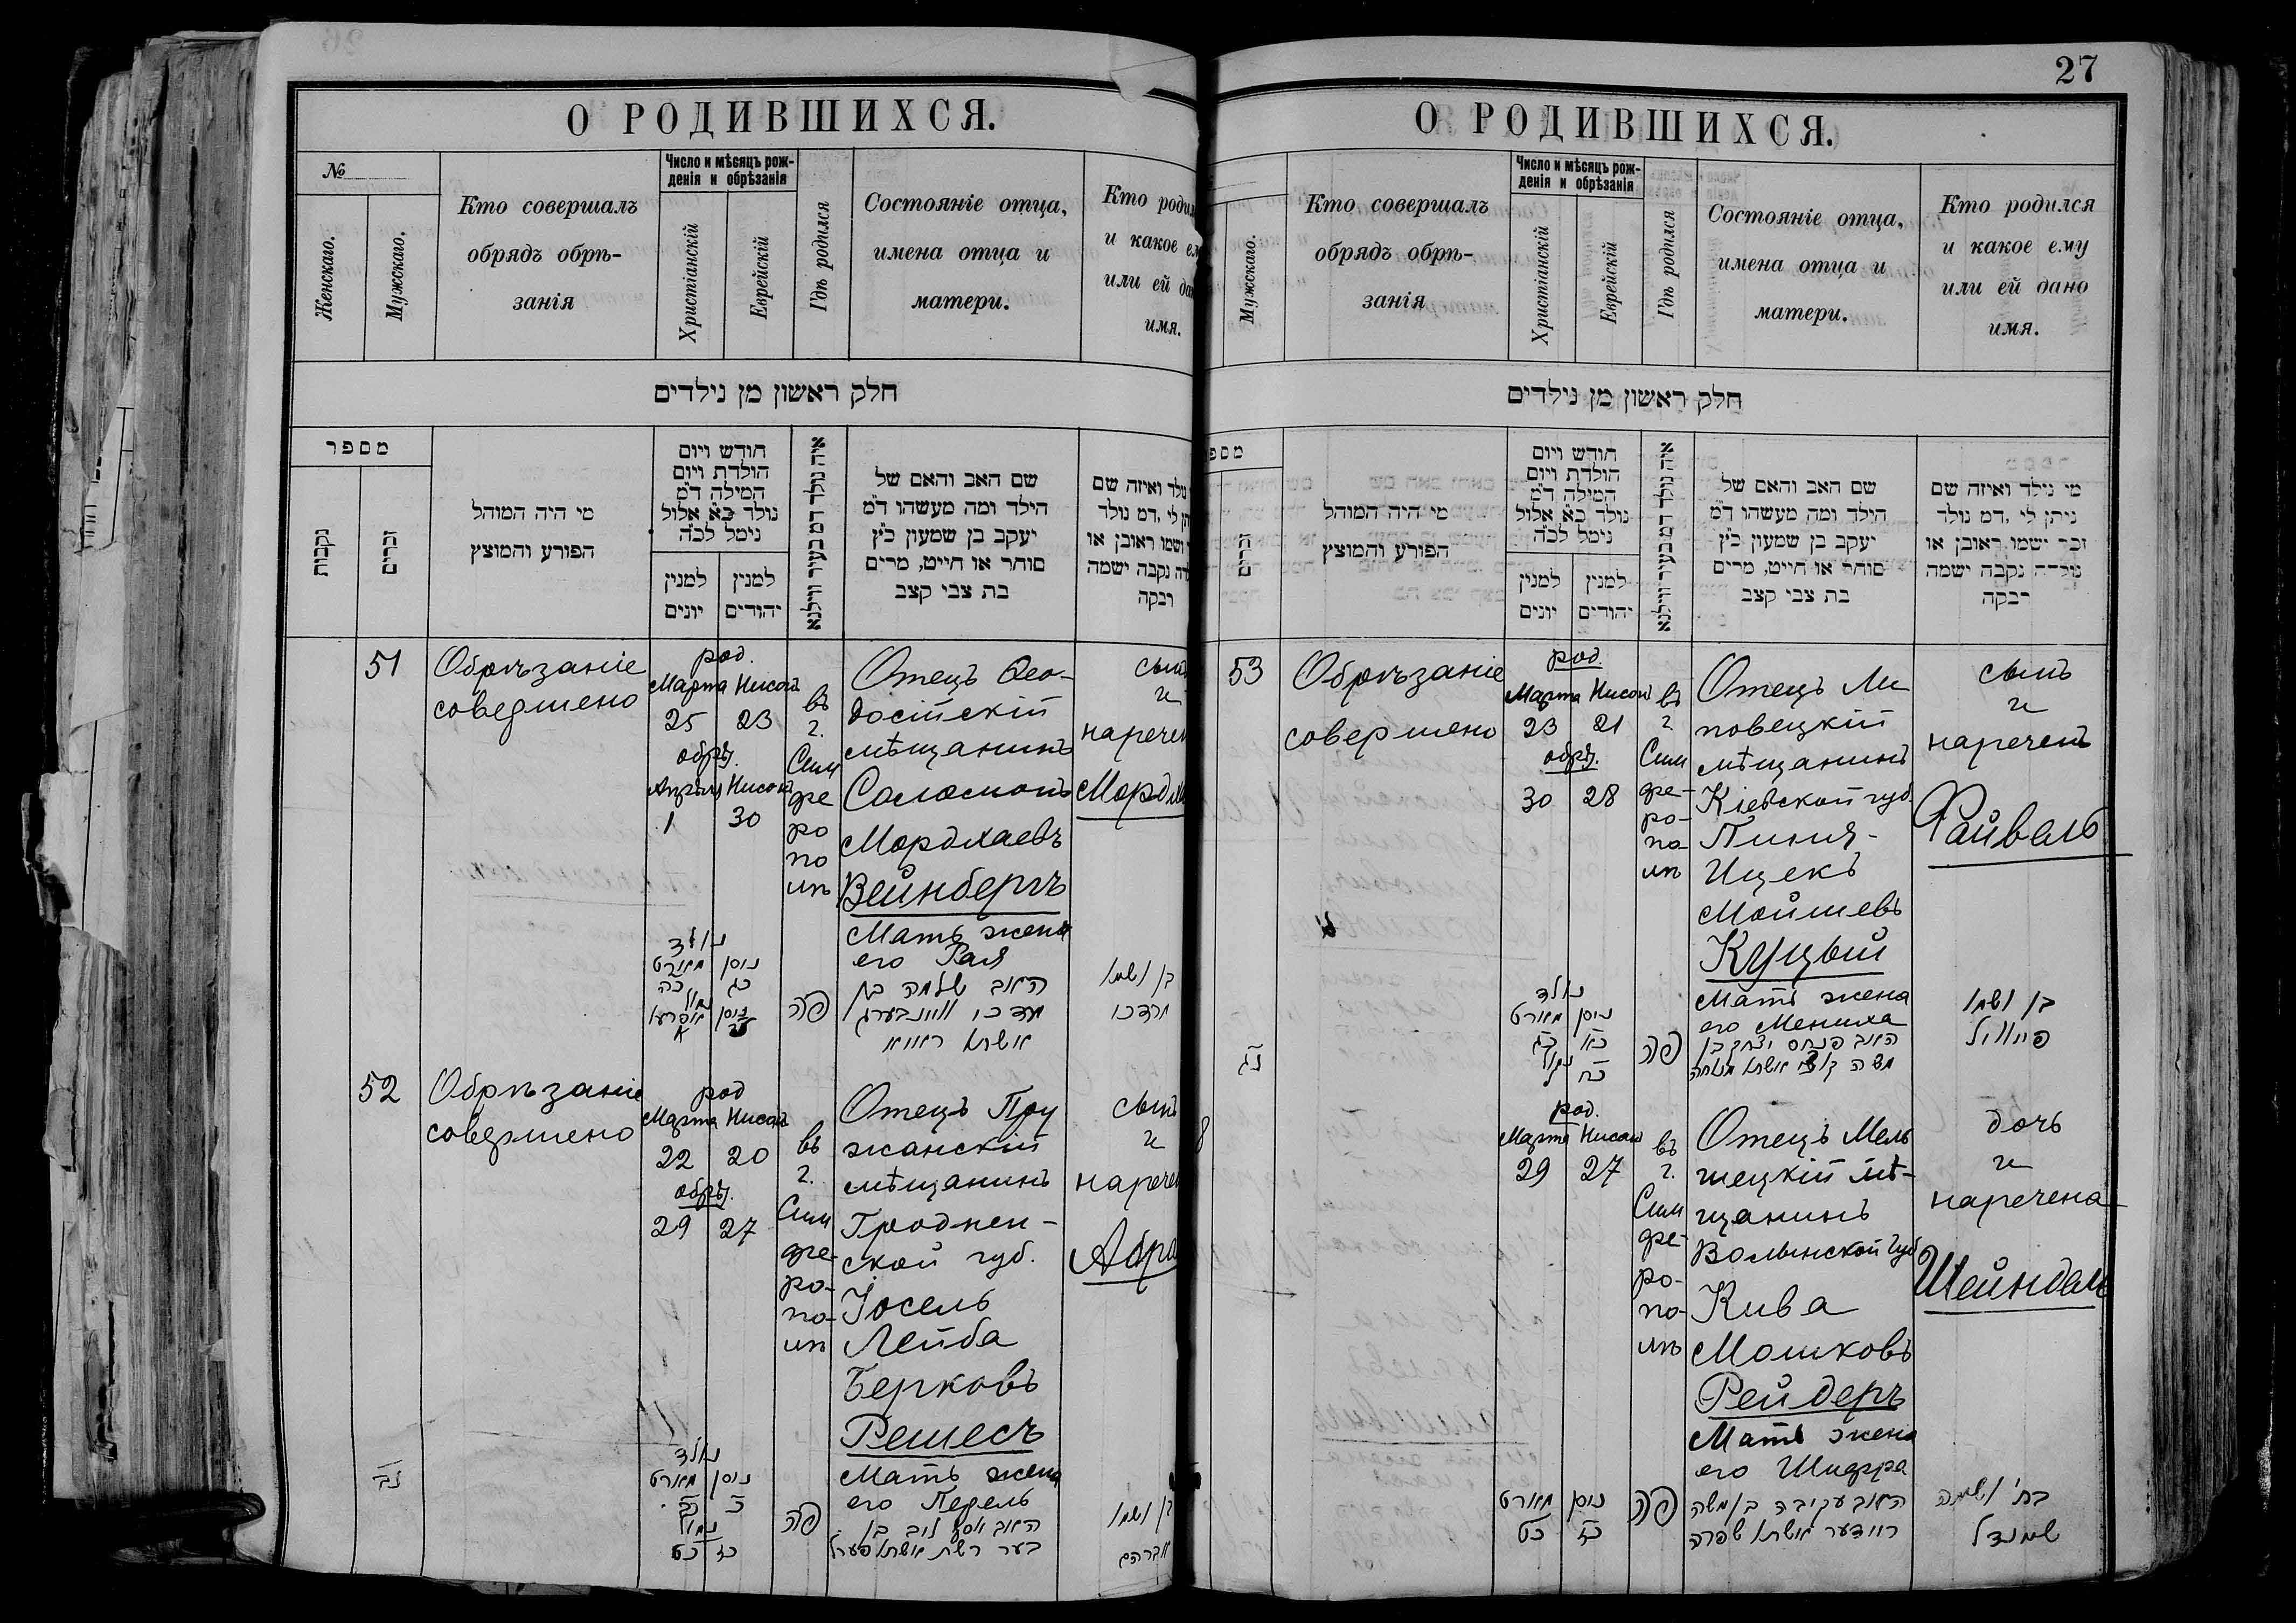 О РОДИВШИХСЯ.
№
Женскаго.
Мужскаго.
Кто совершалъ
обрядъ обрѣ-
занія
Число и мѣсяцъ рож-
денія и обрѣзанія
Христіанскій
Еврейскій
Гдѣ родился
Состояніе отца,
имена отца и
матери.
Кто родил
и какое ем
или ей дан
имя.
חלק ראשון מן נילדים
מספר
נקבות
זכרים
מי היה המוהל
הפורע והמוצץ
חודש ויום
הולדת ויום
המילה ד״מ
נולד כ״א אלול
נימל לכ״ה
למנין
יונים
למנין
יהודים
איה נולד דמ בעיר ווילנא
שם האב והאם של
הילד ומה מעשהו ד״מ
יעקב בן שמעון כ״ץ
סוחר או חייט, מרים
בת צבי קצב
נולד ואיזה שם
תן לי, דמ נולד
ושמו ראובן או
דה נקבה ישמה
רבקה
51
Обрѣзаніе
совершено
род.
Марта Нисонъ
25 23
обрѣз.
Апрѣля Нисонъ
1 30
въ
г.
Сим
фе
ро
по
лѣ
Отецъ Ѳео-
досійскій
мѣщанинъ
Соломонъ
Мордхаевъ
Вейнбергъ
Мать жена
его Рая
сынъ
и
наречен
Мордх
נולד
ניסן מארט
כג כה
נמול
ניסן אפריל
א
פה
האב שלמה בן
מרדכי וויינבערג
אשתו ראיא
בן ושמו
מרדכי
52
Обрѣзаніе
совершено
род
Марта Нисанъ
22 20
обрѣз.
29 27
въ
г.
Сим
фе-
ро-
по-
лѣ
Отецъ Пру
жанскій
мѣщанинъ
Гроднен-
ской губ.
Іосель
Лейба
Берковъ
Решесъ
Мать жена
его Перель
сынъ
и
нарече
Абра
נב
נולד
ניסן מארט
כ כב
נמול
כז כט
פה
האב יוסף ליב בן
בער רשת אשתו פערל
בן ושמו
אברהם
27
О РОДИВШИХСЯ.
Мужскаго.
Кто совершалъ
обрядъ обрѣ-
занія
Число и мѣсяцъ рож-
денія и обрѣзанія
Христіанскій
Еврейскій
Гдѣ родился
Состояніе отца,
имена отца и
матери.
Кто родился
и какое ему
или ей дано
имя.
חלק ראשון מן נילדים
מספ
זכרים
מי היה המוהל
הפורע והמוצץ
חודש ויום
הולדת ויום
המילה ד״מ
נולד כ״א אלול
נימל לכ״ה
למנין
יונים
למנין
יהודים
איה נולד דמ בעיר ווילנא
שם האב והאם של
הילד ומה מעשהו ד״מ
יעקב בן שמעון כ״ץ
סוחר או חייט, מרים
בת צבי קצב
מי נילד ואיזה שם
ניתן לי, דמ נולד
זכר ישמו ראובן או
נולדה נקבה ישמה
רבקה
53
Обрѣзаніе
совершено
род.
Марта Нисонъ
23 21
обрѣз.
30 28
въ
г.
Сим
фе-
ро-
по-
лѣ
Отецъ Ли
повецкій
мѣщанинъ
Кіевской губ.
Пиня-
Ицекъ
Мойшевъ
Куцый
Мать жена
его Мениха
сынъ
и
нареченъ
Файвель
נג
נולד
ניסן מארט
כא כג
נמול
כח ל
פה
האב פנחס יצחק בן
משה קוצי אשתו מנוחה
בן ושמו
פייוויל
8
род.
Марта Нисанъ
29 27
въ
г.
Сим
фе-
ро-
по-
лѣ
Отецъ Мель
ницкій мѣ-
щанинъ
Волынской губ
Кива
Мошковъ
Рейдеръ
Мать жена
его Шифра
дочь
и
наречена
Шейндель
ניסן מארט
כז כט
פה
האב עקיבה בן משה
ריידער אשתו שפרה
בת ושמה
שיינדל